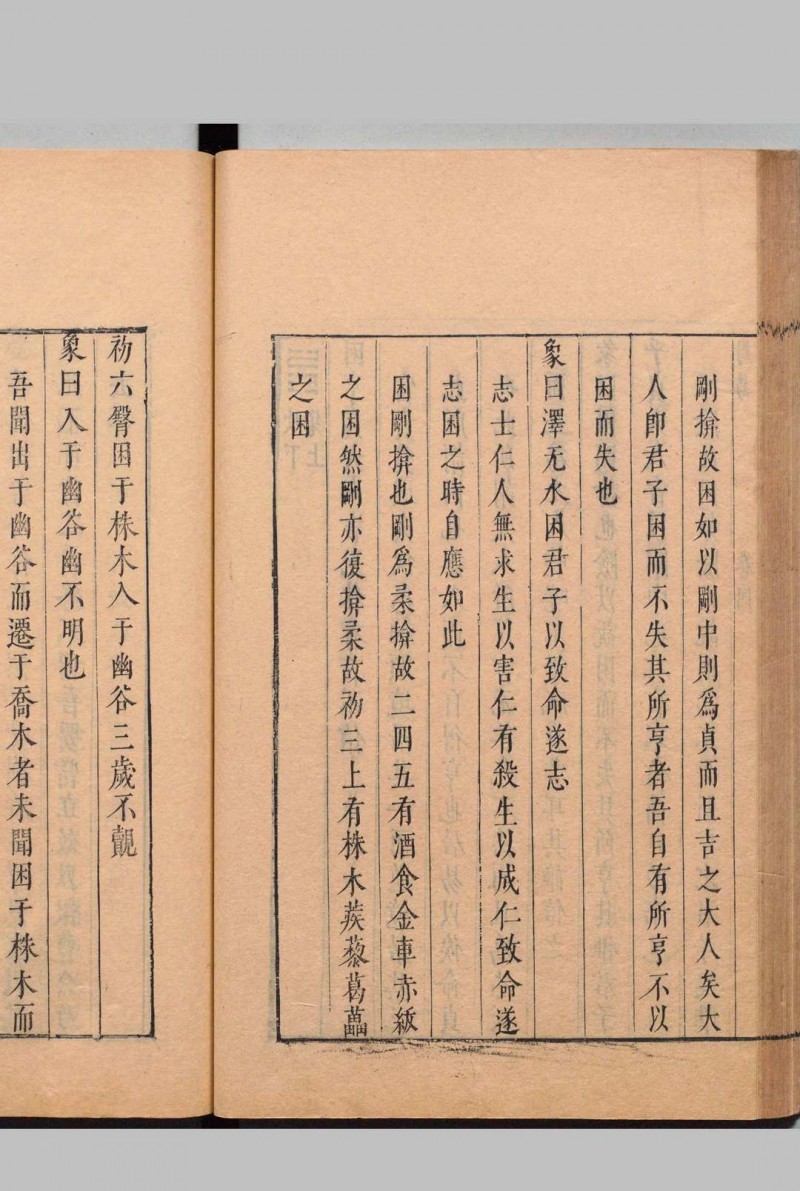 剛揜故困如以剛中則爲貞而且吉之大人矣大
人卽君子困而不失其所亨者吾自有所亨不以
困而失也
象曰澤无水困君子以致命遂志
志士仁人無求生以害仁有殺生以成仁致命遂
志困之時自應如此
困剛揜也剛爲柔揜故二四五有酒食金車赤紱
之困然剛亦復揜柔故初三上有株木蒺藜葛藟
之困
初六臀困于株木入于幽谷三歲不覿
象曰入于幽谷幽不明也
吾聞出于幽谷而遷于喬木者未聞困于株木而